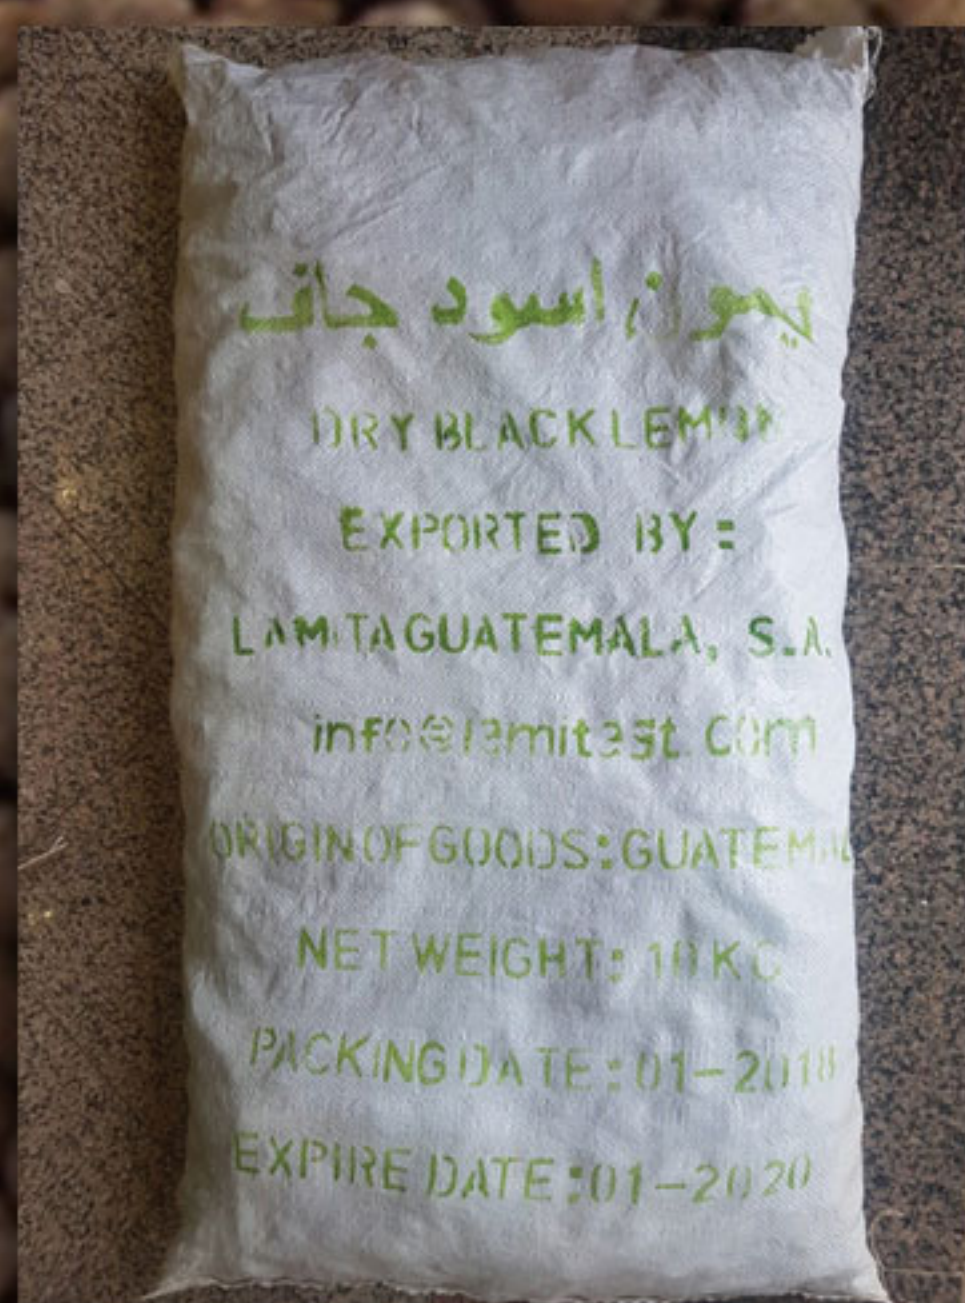 ليمون اسود جاف
DRY BLACK LEMON
EXPORTED BY:
LAMITA GUATEMALA, S.A.
info@lamitagt.com
ORIGIN OF GOODS: GUATEMAL
NET WEIGHT: 10 KG
PACKING DATE: 01-2018
EXPIRE DATE: 01-2020